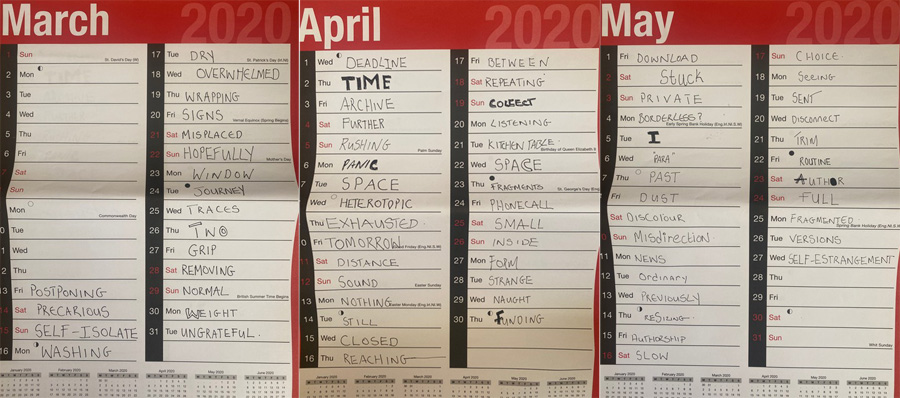 March 2020
1 Sun St. David's Day (W)
2 Mon
3 Tue
4 Wed
5 Thu
6 Fri
7 Sat
Sun
Mon Commonwealth Day
Tue
Wed
2 Thu
13 Fri POSTPONING
14 Sat PRECARIOUS
15 Sun SELF-ISOLATE
16 Mon WASHING
17 Tue DRY St. Patrick's Day (IR.NI)
18 Wed OVERWHELMED
19 Thu WRAPPING
20 Fri SIGNS Vernal Equinox (Spring Begins)
21 Sat MISPLACED
22 Sun HOPEFULLY Mother's Day
23 Mon WINDOW
24 Tue JOURNEY
25 Wed TRACES
26 Thu TWO
27 Fri GRIP
28 Sat REMOVING
29 Sun NORMAL British Summer Time Begins
30 Mon WEIGHT
31 Tue UNGRATEFUL.
January 2020 February 2020 March 2020 April 2020 May 2020 June 2020
April 2020
1 Wed DEADLINE
2 Thu TIME
3 Fri ARCHIVE
4 Sat FURTHER
5 Sun RUSHING Palm Sunday
6 Mon PANIC
7 Tue SPACE
Wed HETEROTOPIC
Thu EXHAUSTED
0 Fri TOMORROW Good Friday (Eng.NI.S.W)
11 Sat DISTANCE
12 Sun SOUND Easter Sunday
13 Mon NOTHING Easter Monday (Eng.NI.W)
14 Tue STILL
15 Wed CLOSED
16 Thu REACHING
17 Fri BETWEEN
18 Sat REPEATING
19 Sun COLLECT
20 Mon LISTENING
21 Tue KITCHEN TABLE. Birthday of Queen Elizabeth II
22 Wed SPACE
23 Thu FRAGMENTS St. George's Day (Eng)
24 Fri PHONECALL
25 Sat SMALL
26 Sun INSIDE
27 Mon FORM
28 Tue STRANGE
29 Wed NAUGHT
30 Thu FUNDING
January 2020 February 2020 March 2020 April 2020 May 2020 June 2020
May 2020
1 Fri DOWNLOAD
2 Sat Stuck
3 Sun PRIVATE
4 Mon BORDERLESS? Early Spring Bank Holiday (Eng.NI.S.W)
5 Tue I
6 Wed "PARA"
7 Thu PAST
Fri DUST
Sat DISCOLOUR
Sun Misdirection
11 Mon NEWS
12 Tue Ordinary
13 Wed PREVIOUSLY
14 Thu RESIZING.
15 Fri AUTHORSHIP
16 Sat SLOW
17 Sun CHOICE.
18 Mon SEEING
19 Tue SENT
20 Wed Disconnect
21 Thu TRIM
22 Fri ROUTINE
23 Sat AUTHOR
24 Sun FULL
25 Mon FRAGMENTED Spring Bank Holiday (Eng.NI.S.W)
26 Tue VERSIONS
27 Wed SELF-ESTRANGEMENT
28 Thu
29 Fri
30 Sat
31 Sun Whit Sunday
January 2020 February 2020 March 2020 April 2020 May 2020 June 2020